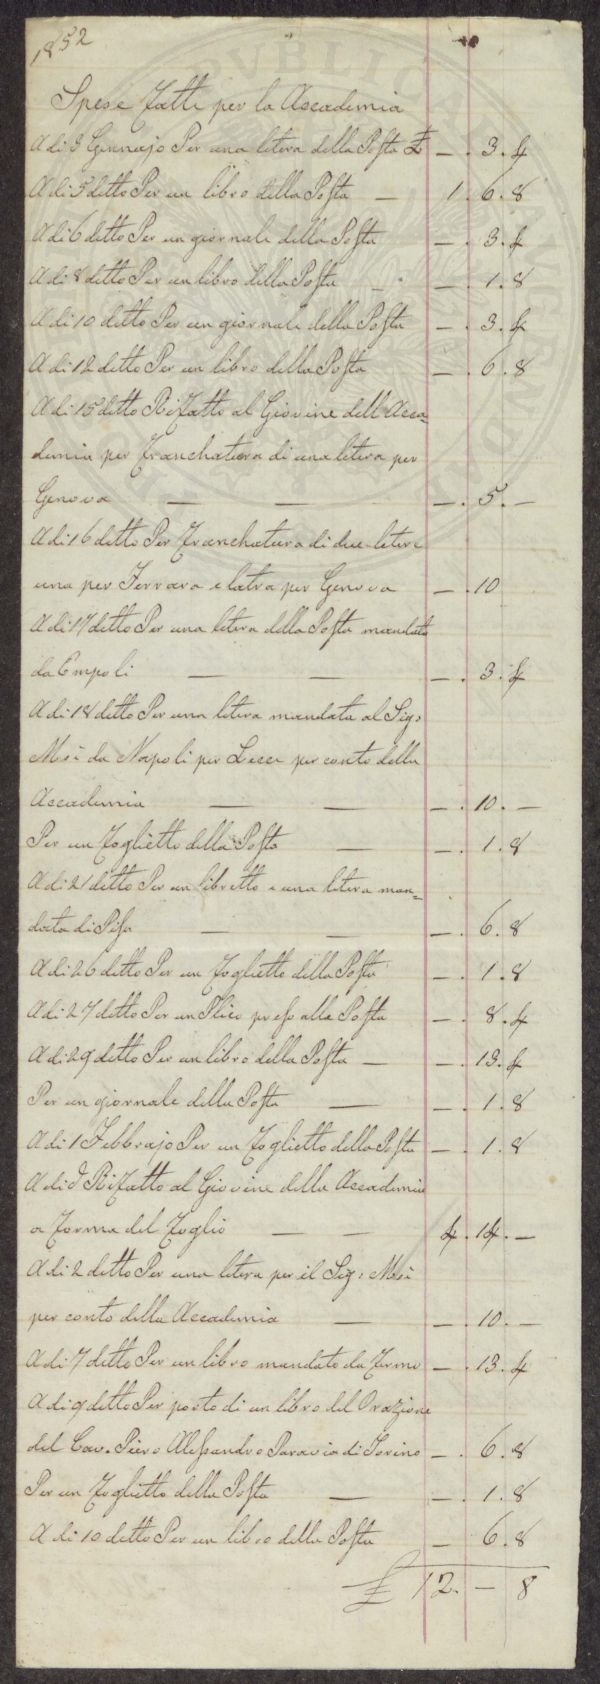 1852
Spese Fatte per la Accademia
A di 3 Gennajo Per una letera della Posta £ — . 3 . 4
A di 5 detto Per un libro della Posta — 1 . 6 . 8
A di 6 detto Per un giornale della Posta — . 3 . 4
A di 8 detto Per un libro della Posta — . 1 . 8
A di 10 detto Per un giornale della Posta — . 3 . 4
A di 12 detto Per un libro della Posta — . 6 . 8
A di 15 detto Rifatto al Giovine dell Acca=
demia per Franchatura di una letera per
Genova — — — . 5 . —
A di 16 detto Per Franchatura di due letere
una per Ferrara e latra per Genova — . 10
A di 17 detto Per una letera della Posta mandata
da Empoli — — — . 3 . 4
A di 18 detto Per una letera mandata al Sig:
da Napoli per Lecce per conto della
Accademia — — — . 10 . —
Per un Foglietto della Posta — — . 1 . 8
A di 21 detto Per un libretto e una letera man=
data di Pisa — — — . 6 . 8
A di 26 detto Per un Foglietto della Posta — . 1 . 8
A di 27 detto Per un Plico preso alla Posta — . 8 . 4
A di 29 detto Per un libro della Posta — — . 13 . 4
Per un giornale della Posta — — . 1 . 8
A di 1 Febbrajo Per un Foglietto della Posta — . 1 . 8
A di d Rifatto al Giovine della Accademia
a Forma del Foglio — — 4 . 14 . —
A di 2 detto Per una letera per il Sig:
per conto della Accademia — — . 10 . —
A di 7 detto Per un libro mandato da Fermo — . 13 . 4
A di 9 detto Per porto di un libro del Orazione
del Cav. Piero Alessandro Paravia di Torino — . 6 . 8
Per un Foglietto della Posta — — . 1 . 8
A di 10 detto Per un libro della Posta — 6 . 8
£ 12 . — 8